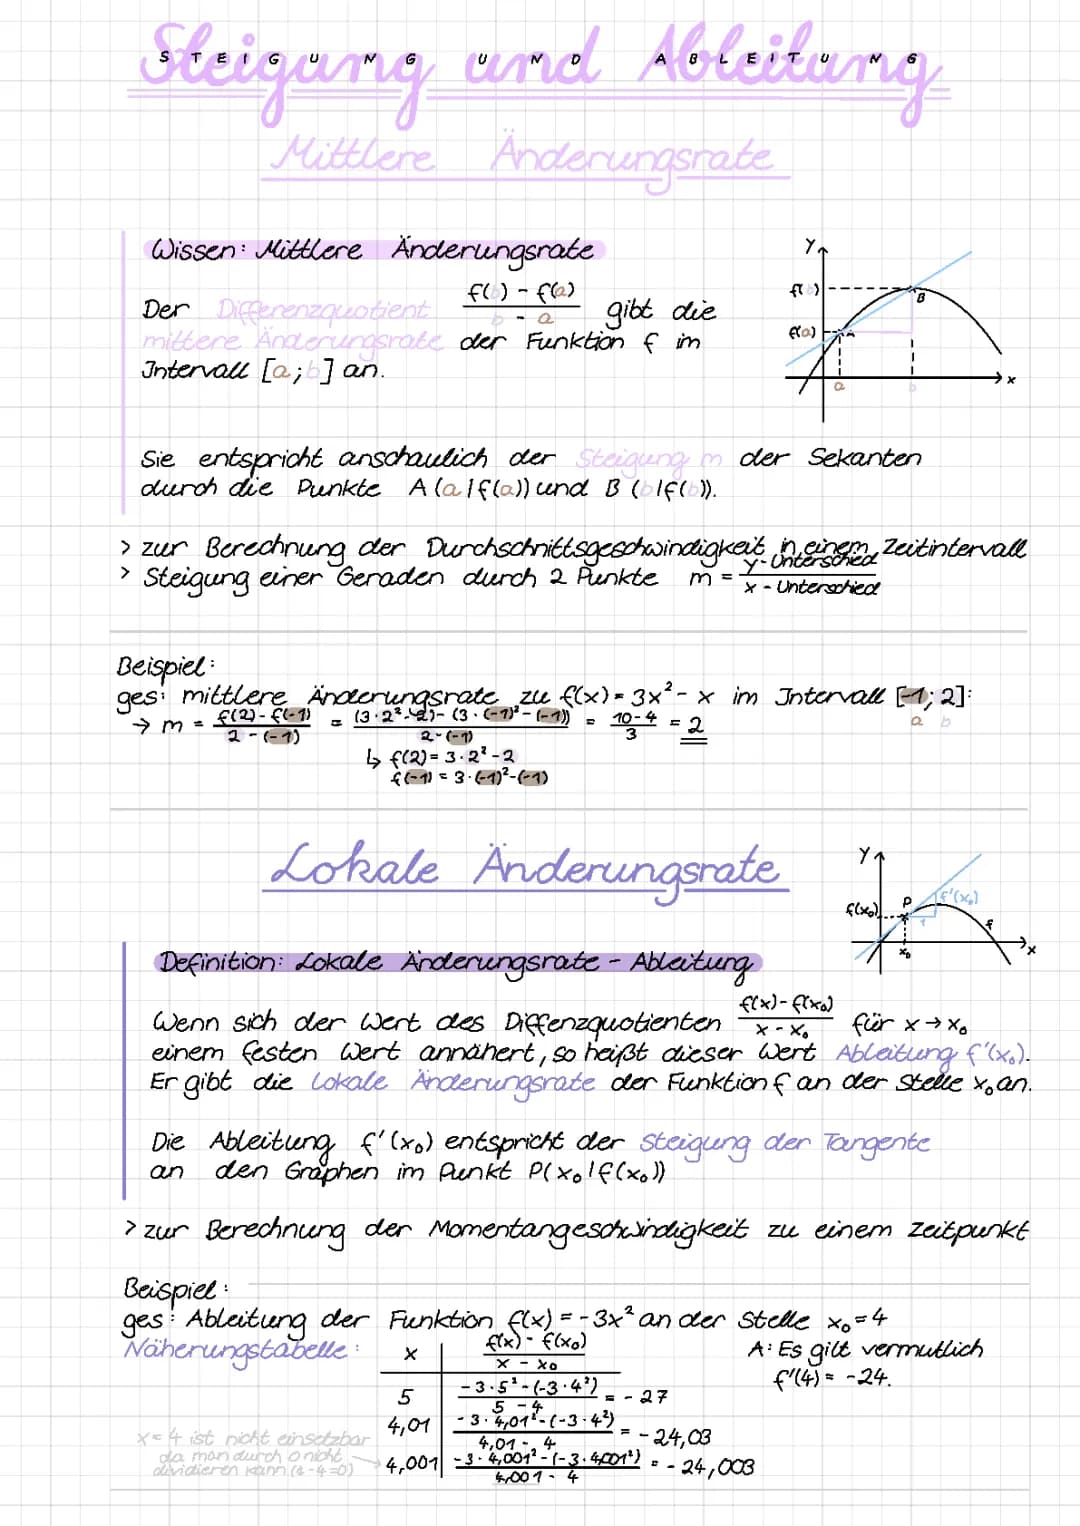 Steigung und Ableitung
STEIGUNG UND ABLEITUNG
Mittlere Änderungsrate
Wissen: Mittlere Änderungsrate
Der Differenzquotient (f(b) - f(a))/(b - a) gibt die
mittere Änderungsrate der Funktion f im
Intervall [a;b] an.
y
f(b)
B
f(a)
A
a
b
x
Sie entspricht anschaulich der Steigung m der Sekanten
durch die Punkte A (a|f(a)) und B (b|f(b)).
> zur Berechnung der Durchschnittsgeschwindigkeit in einem Zeitintervall
> Steigung einer Geraden durch 2 Punkte m = y-Unterschied / x - Unterschied
Beispiel:
ges: mittlere Änderungsrate zu f(x) = 3x² - x im Intervall [-1; 2]:
a b
→ m = (f(2) - f(-1))/(2 - (-1)) = ((3·2²-2) - (3·(-1)²-(-1)))/(2-(-1)) = (10-4)/3 = 2
↳ f(2) = 3·2²-2
f(-1) = 3·(-1)²-(-1)
Lokale Änderungsrate
y
f(x₀)
P
f'(x₀)
1
f
x₀
x
Definition: Lokale Änderungsrate - Ableitung
Wenn sich der Wert des Diffenzquotienten (f(x) - f(x₀))/(x - x₀) für x → x₀
einem festen Wert annähert, so heißt dieser Wert Ableitung f'(x₀).
Er gibt die lokale Änderungsrate der Funktion f an der Stelle x₀ an.
Die Ableitung f'(x₀) entspricht der Steigung der Tangente
an den Graphen im Punkt P(x₀|f(x₀))
> zur Berechnung der Momentangeschwindigkeit zu einem Zeitpunkt
Beispiel:
ges: Ableitung der Funktion f(x) = -3x² an der Stelle x₀=4
Näherungstabelle: x | (f(x) - f(x₀))/(x - x₀)
A: Es gilt vermutlich
f'(4) = -24.
5 | (-3·5²-(-3·4²))/(5-4) = -27
4,01 | (-3·4,01²-(-3·4²))/(4,01-4) = -24,03
4,001 | (-3·4,001²-(-3·4,001²))/(4,001-4) = -24,003
x=4 ist nicht einsetzbar
da man durch 0 nicht
dividieren kann (4-4=0)